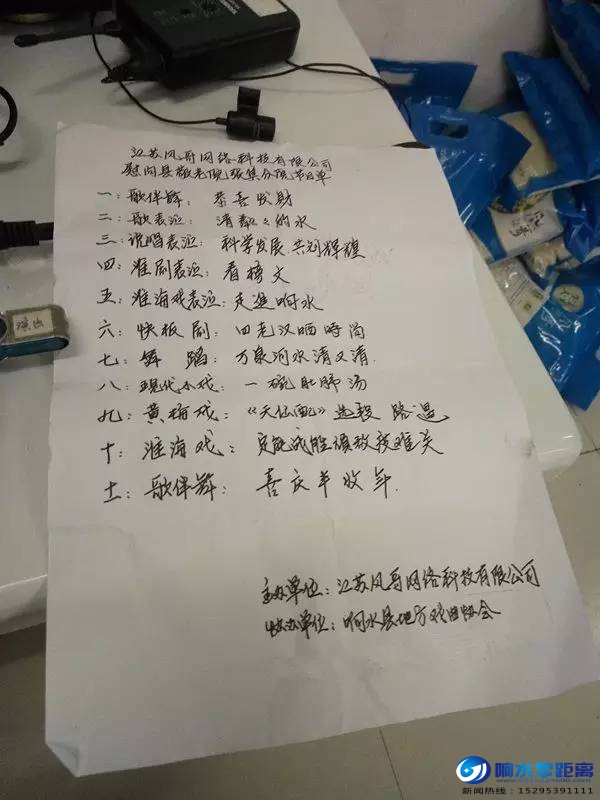 江苏风哥网络科技有限公司
慰问县敬老院张集分院节目单
一：歌伴舞： 恭喜发财
二：歌表演： 清粼粼的水
三：说唱表演： 科学发展 共列辉煌
四：淮剧表演： 看榜文
五：淮海戏表演：走进响水
六：快板剧： 四老汉晒时尚
七：舞 蹈： 万泉河水清又清
八：现代小戏： 一碗肚肺汤
九：黄梅戏：《天仙配》选段 路遇
十：淮海戏： 定能战胜顽敌渡难关
十一：歌伴舞： 喜庆丰收年.
主办单位：江苏风哥网络科技有限公司
协办单位：响水县地方戏曲协会
演出
响水零距离
新闻热线：15295391111